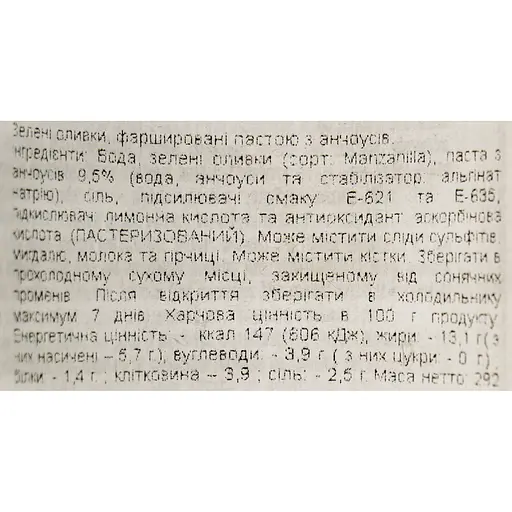 Зелені оливки, фаршировані пастою з анчоусів.
Інгредієнти: Вода, зелені оливки (сорт: Manzanilla), паста з
анчоусів 9,5% (вода, анчоуси та стабілізатор: альгінат
натрію), сіль, підсилювачі смаку: Е-621 та Е-635,
підкислювач: лимонна кислота та антиоксидант: аскорбінова
кислота (ПАСТЕРИЗОВАНИЙ). Може містити сліди сульфітів,
мигдалю, молока та гірчиці. Може містити кістки. Зберігати в
прохолодному сухому місці, захищеному від сонячних
променів. Після відкриття зберігати в холодильнику
максимум 7 днів. Харчова цінність в 100 г продукту:
Енергетична цінність: - ккал 147 (606 кДж), жири: - 13,1 г( з
них насичені – 5,7 г.), вуглеводи: - 3,9 г ( з них цукри: - 0 г) ;
білки: - 1,4 г.; клітковина – 3,9 ; сіль: - 2,5 г. Маса нетто: 292